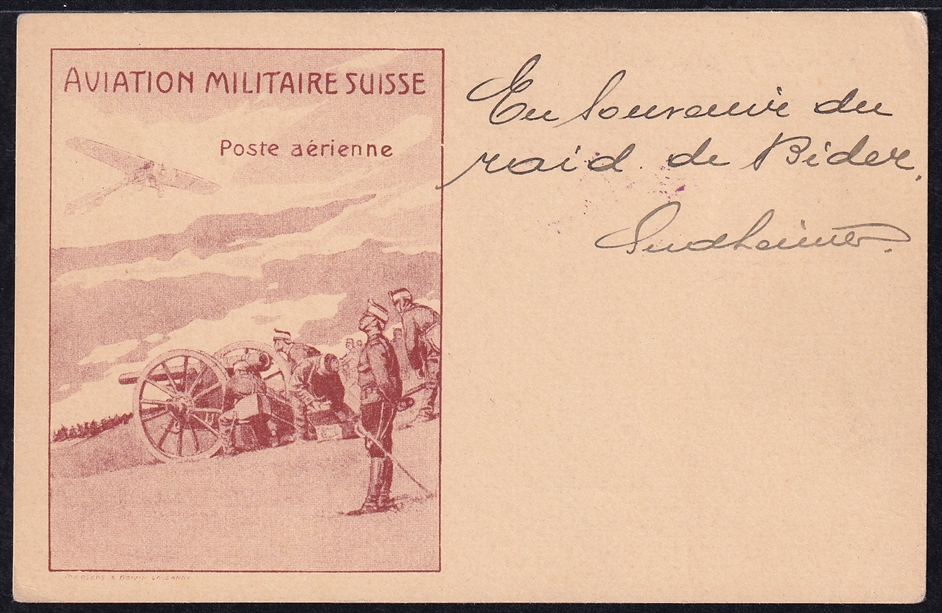 AVIATION MILITAIRE SUISSE
Poste aérienne
En Souvenir du
raid de Bider.